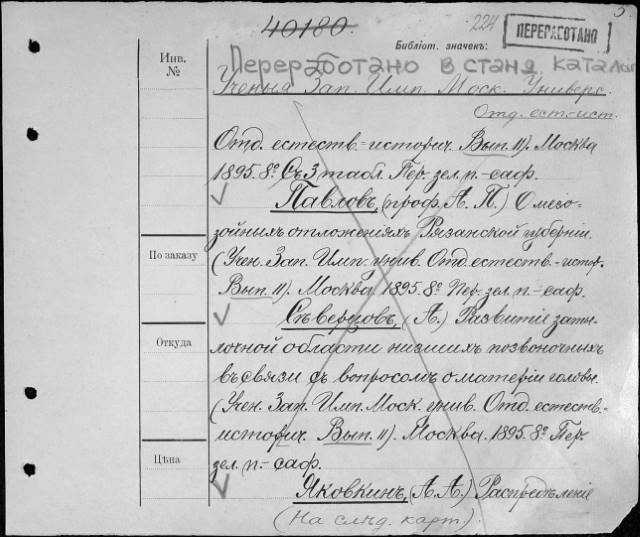 40180.
224
5
ПЕРЕРАБОТАНО
Инв.
№
Библіот. значенъ:
Переработано в станд каталог
Ученыя Зап. Имп. Моск. Универс.
Отд. ест.-ист.
Отд. естеств.-историч. Вып. 11). Москва
1895. 8º. Съ 3 табл. Пер. зел. п.-саф.
Павловъ, (проф. А. П.) О мезо-
зойныхъ отложеніяхъ Рязанской губерніи.
По заказу
(Учен. Зап. Имп. унив. Отд. естеств.-истор.
Вып. 11). Москва. 1895. 8º. Пер. зел. п.-саф.
Сѣверцовъ, (А.) Развитіе заты-
Откуда
лочной области низшихъ позвоночныхъ
въ связи съ вопросомъ о матеріи головы.
(Учен. Зап. Имп. Моск. унив. Отд. естеств.-
историч. Вып. 11). Москва. 1895. 8º. Пер.
Цѣна
зел. п.-саф.
Яковкинъ, (А. А.) Распредѣленіе
(На слѣд. карт).